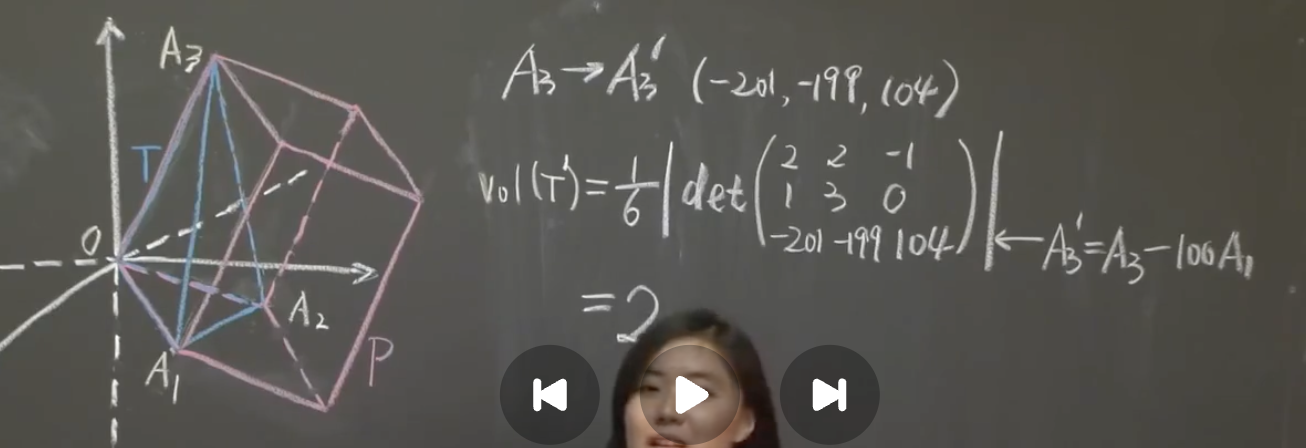 A₃
T
O
A₂
A₁
P
A₃ → A₃′ (-201, -199, 104)
Vol(T′) = 1/6 | det ( 2 2 -1
1 3 0
-201 -199 104 ) | ← A₃′ = A₃ - 100A₁
= 2